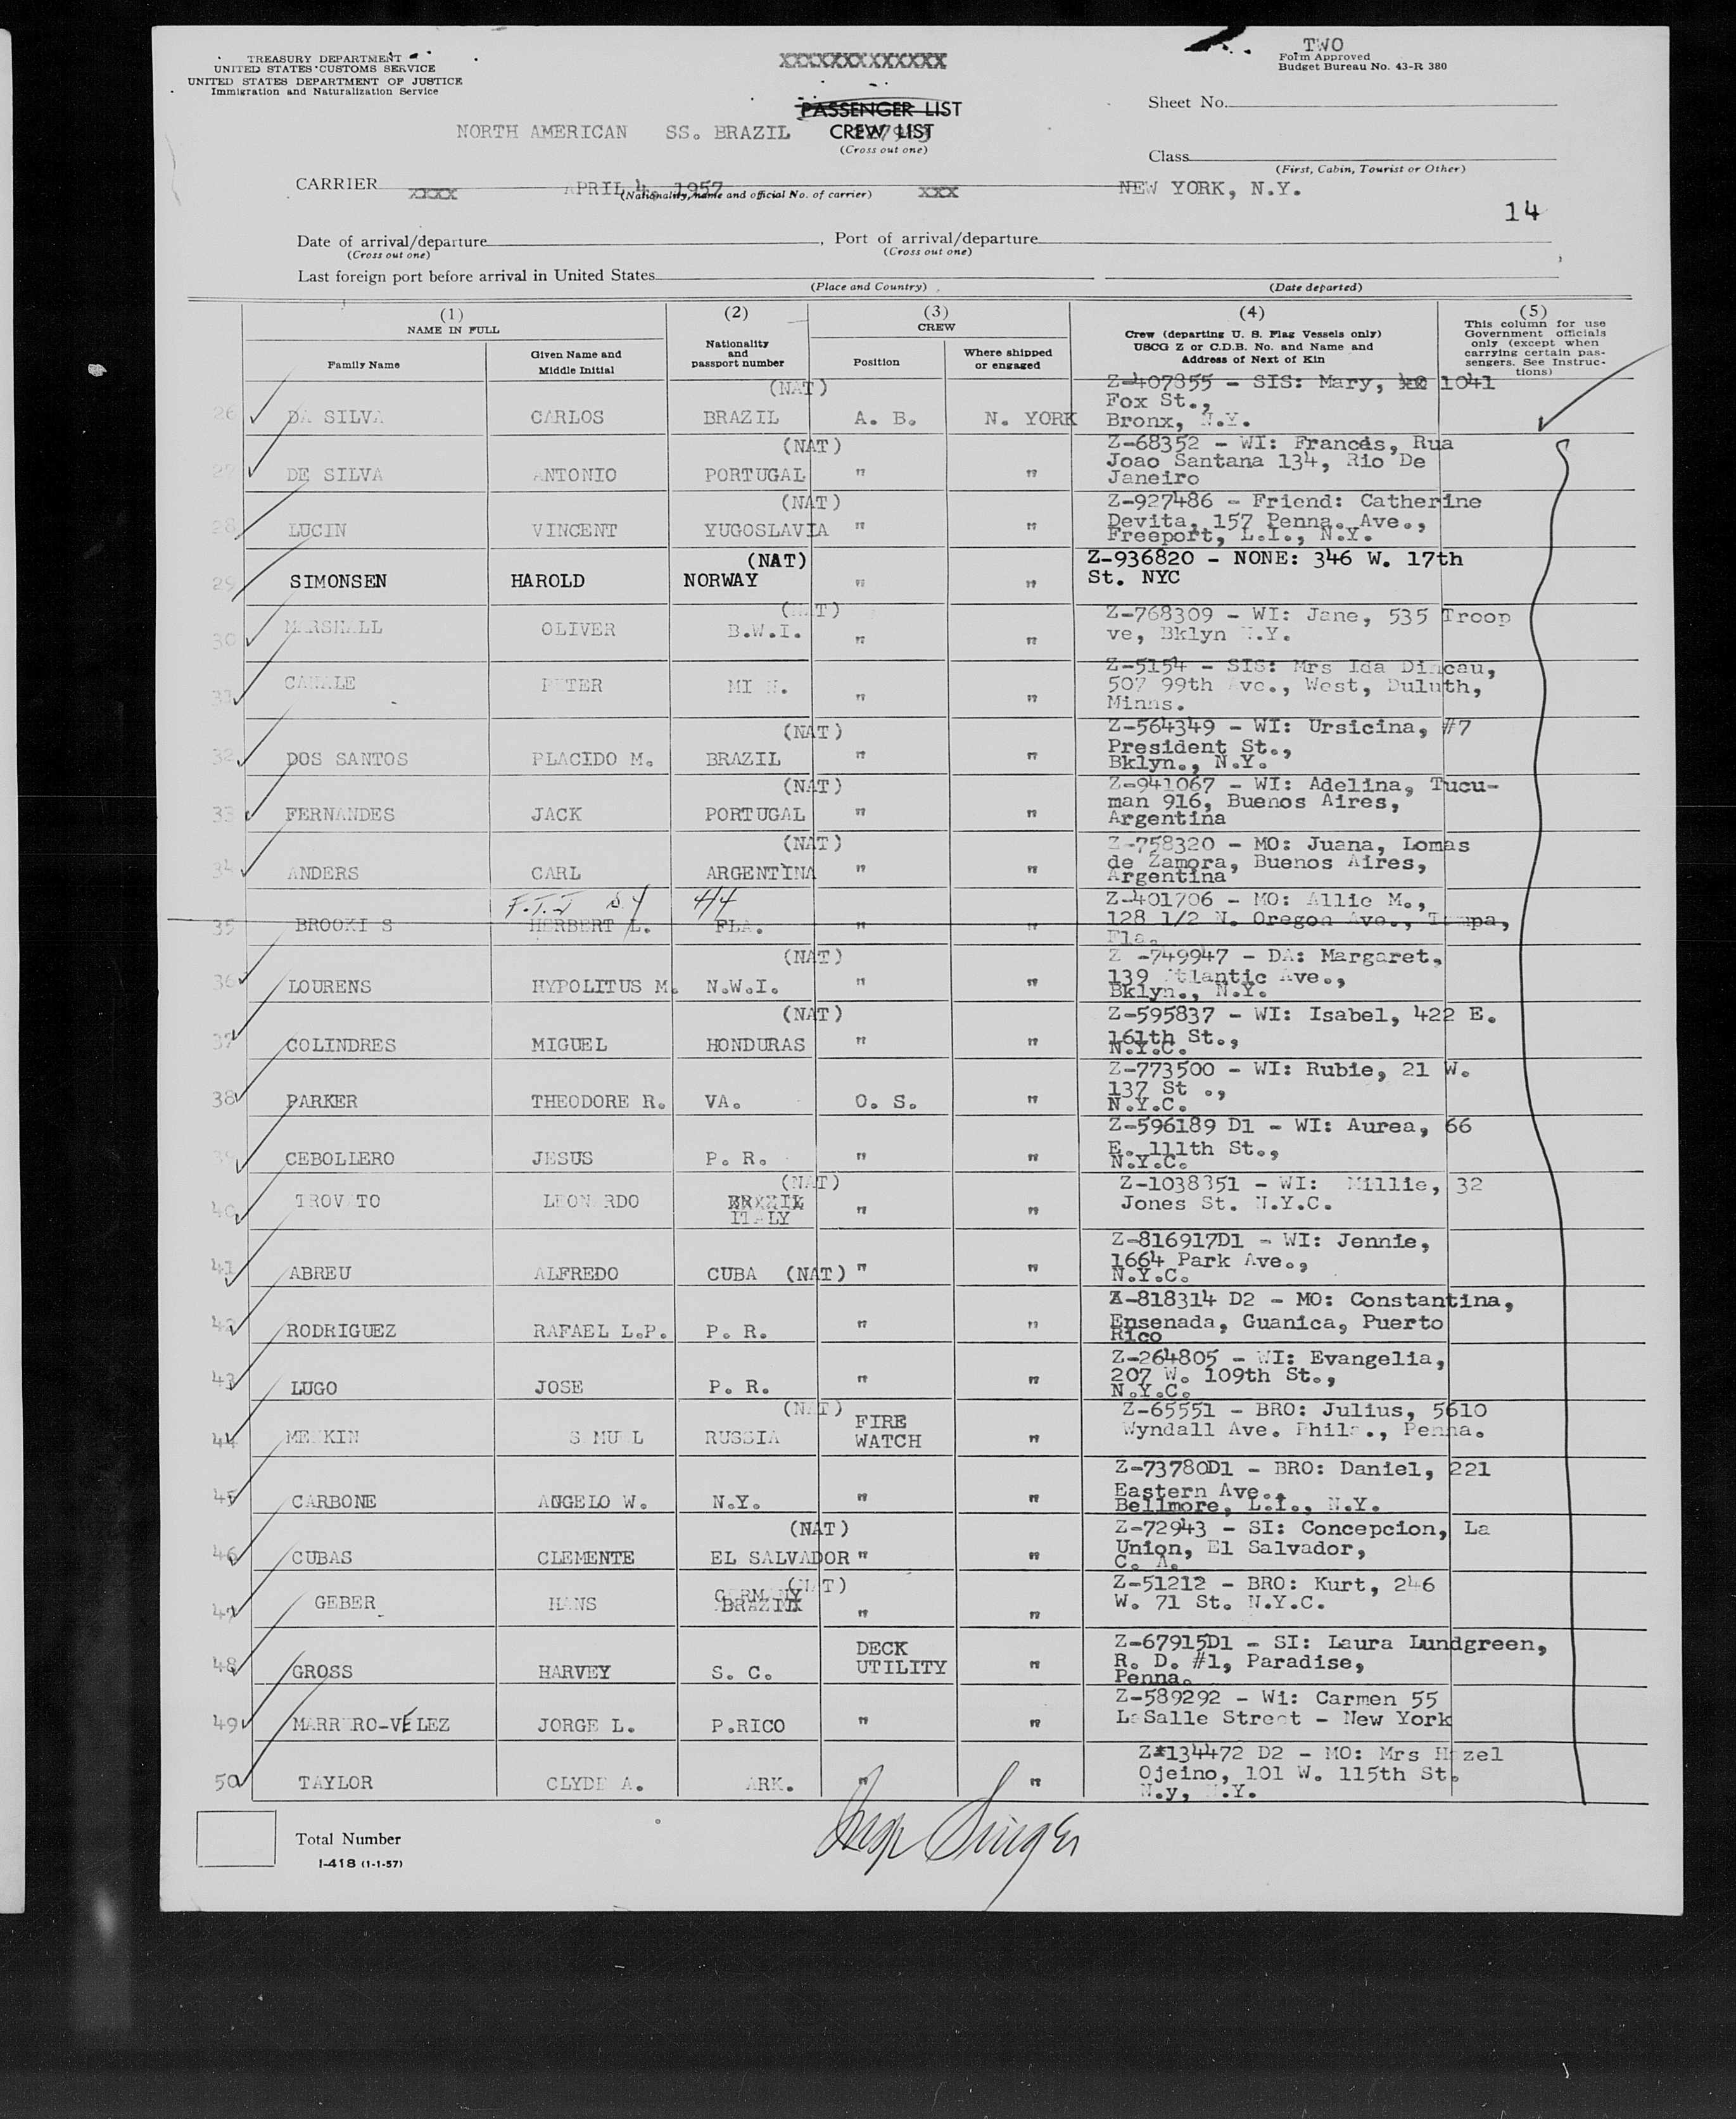 TREASURY DEPARTMENT
UNITED STATES CUSTOMS SERVICE
UNITED STATES DEPARTMENT OF JUSTICE
Immigration and Naturalization Service
XXXXXXXXXXXXX
TWO
Form Approved
Budget Bureau No. 43-R 380
PASSENGER LIST
CREW LIST
(Cross out one)
NORTH AMERICAN SS. BRAZIL
Sheet No.
Class
(First, Cabin, Tourist or Other)
CARRIER
XXXX APRIL 4, 1957 XXX NEW YORK, N.Y.
(Nationality, name and official No. of carrier)
14
Date of arrival/departure , Port of arrival/departure
(Cross out one) (Cross out one)
Last foreign port before arrival in United States
(Place and Country) (Date departed)
(1) NAME IN FULL
Family Name
Given Name and Middle Initial
(2) Nationality and passport number
(3) CREW
Position
Where shipped or engaged
(4) Crew (departing U. S. Flag Vessels only) USCG Z or C.D.B. No. and Name and Address of Next of Kin
(5) This column for use Government officials only (except when carrying certain passengers. See Instructions)
26 DA SILVA CARLOS (NAT) BRAZIL A. B. N. YORK Z-407355 - SIS: Mary, 1041 Fox St., Bronx, N.Y.
27 DE SILVA ANTONIO (NAT) PORTUGAL " " Z-68352 - WI: Francés, Rua Joao Santana 134, Rio De Janeiro
28 LUCIN VINCENT (NAT) YUGOSLAVIA " " Z-927486 - Friend: Catherine Devita, 157 Penna. Ave., Freeport, L.I., N.Y.
29 SIMONSEN HAROLD (NAT) NORWAY " " Z-936820 - NONE: 346 W. 17th St. NYC
30 MARSHALL OLIVER (NAT) B.W.I. " " Z-768309 - WI: Jane, 535 Troop ve, Bklyn N.Y.
31 CANALE PETER MINN. " " Z-5154 - SIS: Mrs Ida Dincau, 507 99th Ave., West, Duluth, Minns.
32 DOS SANTOS PLACIDO M. (NAT) BRAZIL " " Z-564349 - WI: Ursicina, #7 President St., Bklyn., N.Y.
33 FERNANDES JACK (NAT) PORTUGAL " " Z-941067 - WI: Adelina, Tucu- man 916, Buenos Aires, Argentina
34 ANDERS CARL (NAT) ARGENTINA " " Z-758320 - MO: Juana, Lomas de Zamora, Buenos Aires, Argentina
F.T.J N.Y 4/4
35 BROOKI S HERBERT L. FLA. " " Z-401706 - MO: Allie M., 128 1/2 N. Oregon Ave., Tampa, Fla.
36 LOURENS HYPOLITUS M. (NAT) N.W.I. " " Z -749947 - DA: Margaret, 139 Atlantic Ave., Bklyn., N.Y.
37 COLINDRES MIGUEL (NAT) HONDURAS " " Z-595837 - WI: Isabel, 422 E. 161th St., N.Y.C.
38 PARKER THEODORE R. VA. O. S. " Z-773500 - WI: Rubie, 21 W. 137 St ., N.Y.C.
39 CEBOLLERO JESUS P. R. " " Z-596189 D1 - WI: Aurea, 66 E. 111th St., N.Y.C.
40 TROVATO LEONARDO (NAT) BRAZIL ITALY " " Z-1038351 - WI: Millie, 32 Jones St. N.Y.C.
41 ABREU ALFREDO CUBA (NAT) " " Z-816917D1 - WI: Jennie, 1664 Park Ave., N.Y.C.
42 RODRIGUEZ RAFAEL L.P. P. R. " " Z-818314 D2 - MO: Constantina, Ensenada, Guanica, Puerto Rico
43 LUGO JOSE P. R. " " Z-264805 - WI: Evangelia, 207 W. 109th St., N.Y.C.
44 MEKIN SAMUEL (NAT) RUSSIA FIRE WATCH " Z-65551 - BRO: Julius, 5610 Wyndall Ave. Phila., Penna.
45 CARBONE ANGELO W. N.Y. " " Z-73780D1 - BRO: Daniel, 221 Eastern Ave., Bellmore, L.I., N.Y.
46 CUBAS CLEMENTE (NAT) EL SALVADOR " " Z-72943 - SI: Concepcion, La Union, El Salvador, C. A.
47 GEBER HANS (NAT) GERMANY BRAZIL " " Z-51212 - BRO: Kurt, 246 W. 71 St. N.Y.C.
48 GROSS HARVEY S. C. DECK UTILITY " Z-67915D1 - SI: Laura Lundgreen, R. D. #1, Paradise, Penna.
49 MARRERO-VÉLEZ JORGE L. P.RICO " " Z-589292 - Wi: Carmen 55 LaSalle Street - New York
50 TAYLOR CLYDE A. ARK. " " Z*134472 D2 - MO: Mrs Hazel Ojeino, 101 W. 115th St. N.y, N.Y.
Total Number
I-418 (1-1-57)
Singer